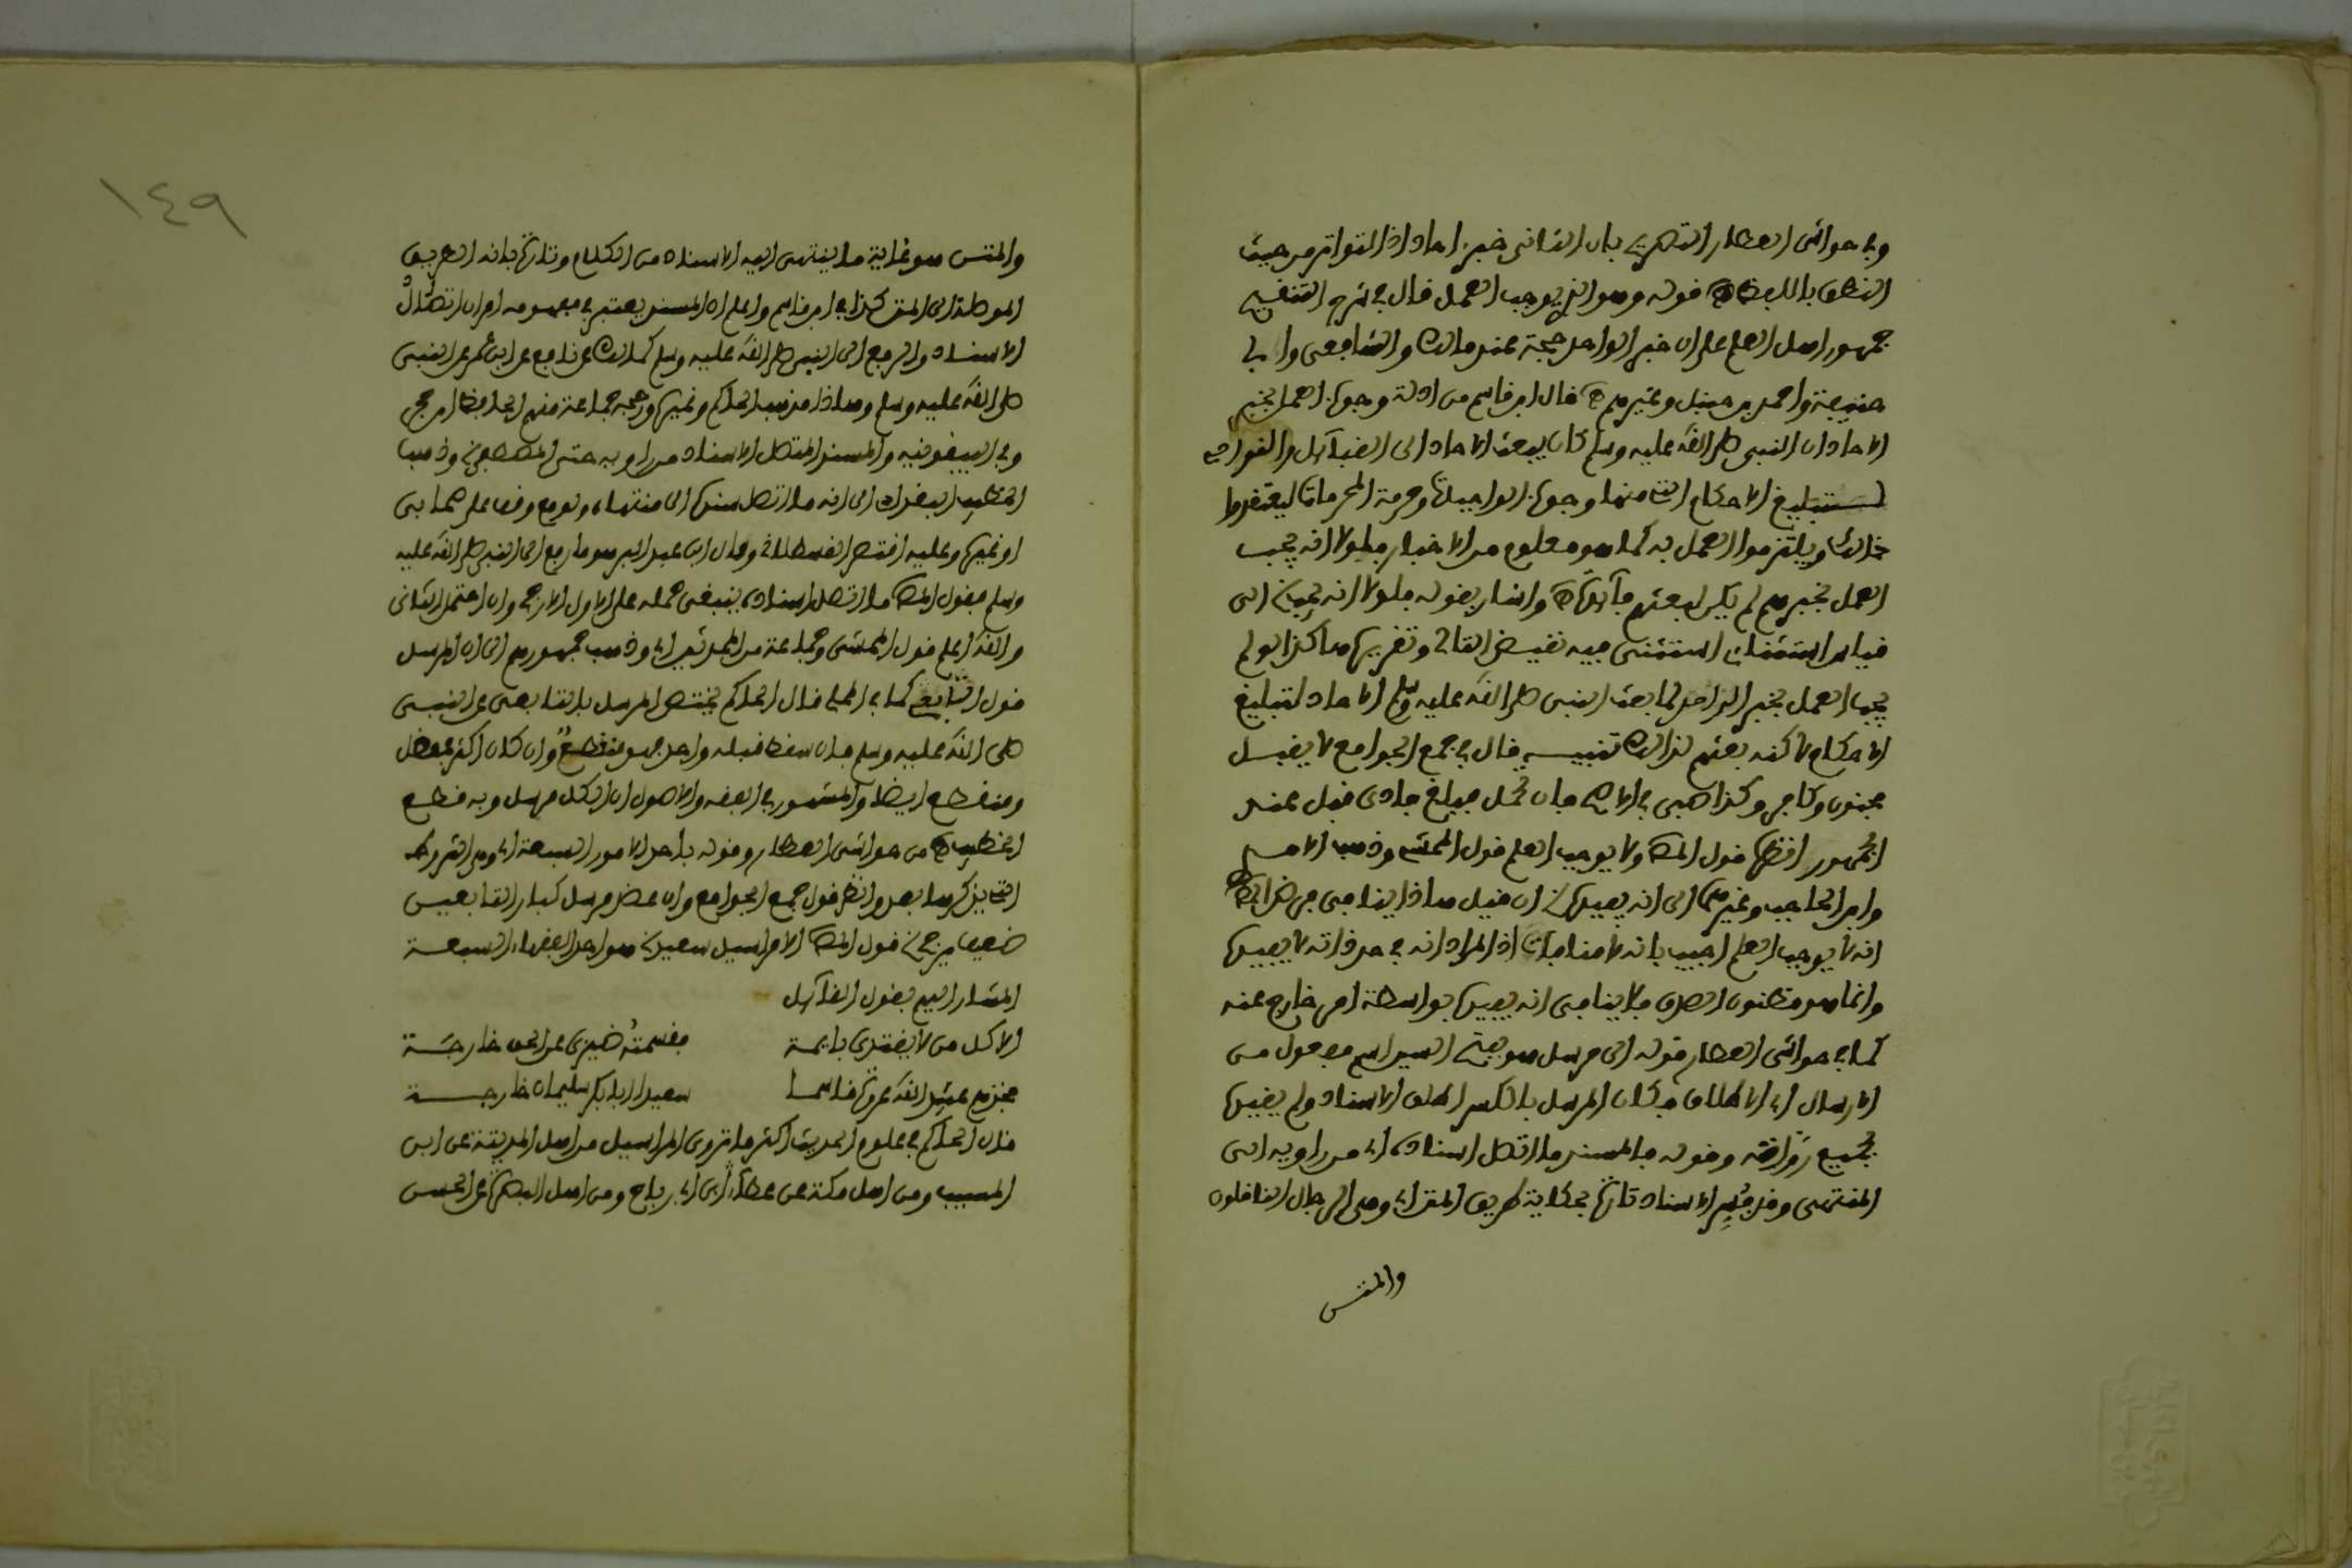 وفي حواشي العطار التصريح بان الثاني خبر احاد اذ التواتر من حيث
النطق باللفظ اه قوله وهو الذي يوجب العمل قال في شرح التنقيح
جمهور اهل العلم على ان خبر الواحد حجة عند مالك والشافعي وابي
حنيفة واحمد بن حنبل وغيرهم اه قال ابن قاسم من ادلة وجوب العمل بخبر
الاحاد ان النبي صلى الله عليه وسلم كان يبعث الاحاد الى القبائل والنواحي
لتبليغ الاحكام التي منها وجوب الواجبات وحرمة المحرمات ليعتقدوا
ذلك ويلتزموا العمل به كما هو معلوم من الاخبار فلولا انه يجب
العمل بخبرهم لم يكن لبعثهم فائدة اه واشار بقوله فلولا انه يجب الخ الى
قياس استثنائي استثني فيه نقيض التالي وتقريره هكذا لو لم
يجب العمل بخبر الواحد لما بعث النبي صلى الله عليه وسلم الاحاد لتبليغ
الاحكام لاكنه بعثهم لذلك تنبيه قال في جمع الجوامع لا يقبل
مجنون وكافر وكذا صبي في الاصح فان تحمل فبلغ فادى قبل عند
الجمهور اه انظره قول المص ولا يوجب العلم قول المحشي وذهب الامدي
وابن الحاجب وغيرهما الى انه يفيده الخ ان قيل هاذا ينافي فرض المص
انه لا يوجب العلم اجيب بانه لا منافات اذ المراد انه في حد ذاته لا يفيده
وانما هو مظنون الصدق فلا ينافي انه يفيده بواسطة امر خارج عنه
كما في حواشي العطار قوله الى مرسل هو بفتح السين اسم مفعول من
الارسال اي الاطلاق فكان المرسل بالكسر اطلق الاسناد ولم يقيده
بجميع رواته وقوله فالمسند ما اتصل اسناده اي من راويه الى
المنتهى وقد فسر الاسناد تارة بحكاية طريق المتن اي وهي الرجال الناقلون
والمتن
١٤٩
والمتن هو غاية ما ينتهي اليه الاسناد من الكلام وتارة بانه الطريق
الموصلة الى المتن كذا في ابن قاسم واعلم ان المسند يعتبر في مفهومه امران اتصال
الاسناد والرفع الى النبي صلى الله عليه وسلم كمالك عن نافع عن ابن عمر عن النبي
صلى الله عليه وسلم وهاذا مذهب الحاكم وغيره ورجحه جماعة منهم الحافظ ابن حجر
وفي البيقونية والمسند المتصل الاسناد من راويه حتى المصطفى الخ وذهب
الخطيب البغدادي الى انه ما اتصل سنده الى منتهاه ولو مع وقف على صحابي
او غيره وعليه اقتصر القسطلاني وقال ابن عبد البر هو ما رفع الى النبي صلى الله عليه
وسلم فقول المص ما اتصل اسناده ينبغي حمله على الاول الارجح وان احتمل الثاني
والله اعلم قول المحشي وجماعة من المحدثين اي وذهب جمهورهم الى ان المرسل
قول التابعي كما في المحلي قال الحاكم يختص المرسل بالتابعي عن النبي
صلى الله عليه وسلم فان سقط قبله واحد فهو منقطع وان كان اكثر فمعضل
ومنقطع ايضا والمشهور في الفقه والاصول ان الكل مرسل وبه قطع
الخطيب اه من حواشي العطار وقوله باحد الامور السبعة اي وهي الشروط
التي يذكرها بعد وانظر قول جمع الجوامع وان عضد مرسل كبار التابعين
ضعيف يرجح الخ قول المص الا مراسيل سعيد الخ هو احد الفقهاء السبعة
المشار اليهم بقول القائل
الا كل من لا يقتدي بايمة    فقسمته ضيزى عن الحق خارجة
فخذهم عبيد الله عروة قاسما    سعيد ابا بكر سليمان خارجة
قال الحاكم في علوم الحديث اكثر ما تروى المراسيل من اهل المدينة عن ابن
المسيب ومن اهل مكة عن عطاء ابن ابي رباح ومن اهل البصرة عن الحسن